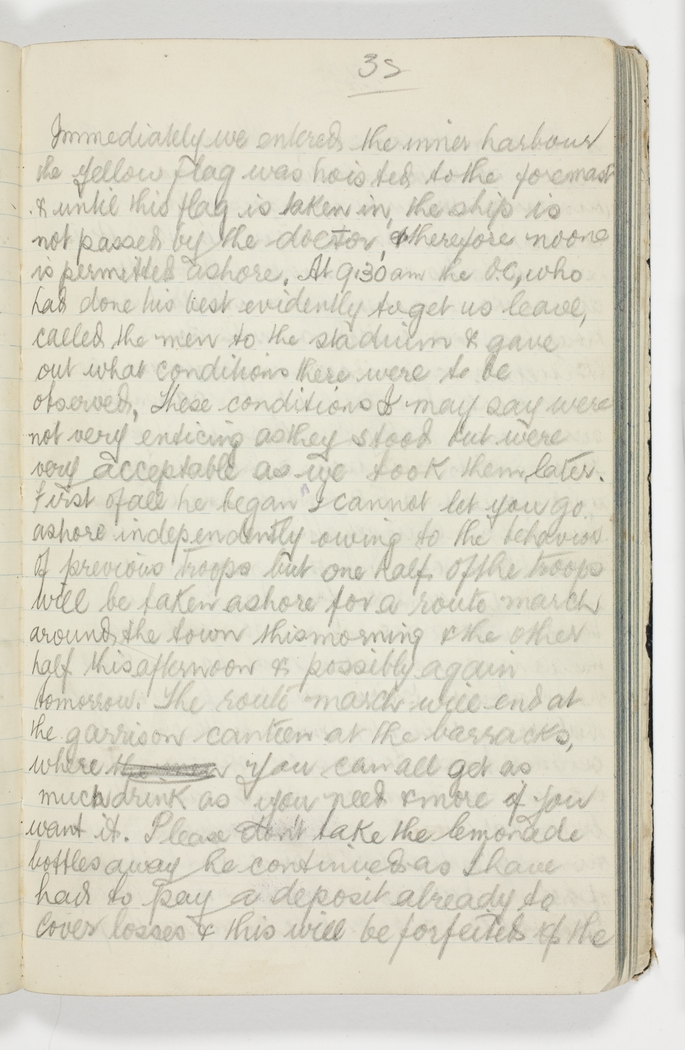 35
Immediately we entered the inner harbour
the yellow flag was hoisted to the foremast
& until this flag is taken in, the ship is
not passed by the doctor, & therefore no one
is permitted ashore. At 9.30 am the O.C, who
had done his best evidently to get us leave,
called the men to the stadium & gave
out what conditions there were to be
observed. These conditions I may say were
not very enticing as they stood but were
very acceptable as we took them later.
First of all he began "I cannot let you go
ashore independently owing to the behavior
of previous troops but one half of the troops
will be taken ashore for a route march
around the town this morning & the other
half this afternoon & possibly again
tomorrow. The route march will end at
the garrison canteen at the barracks,
where you can all get as
much drink as you need & more if you
want it. Please don't take the lemonade
bottles away he continued as I have
had to pay a deposit already to
cover losses & this will be forfeited if the